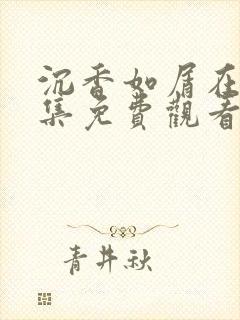 沉香如屑在
集免費觀看
青井秋